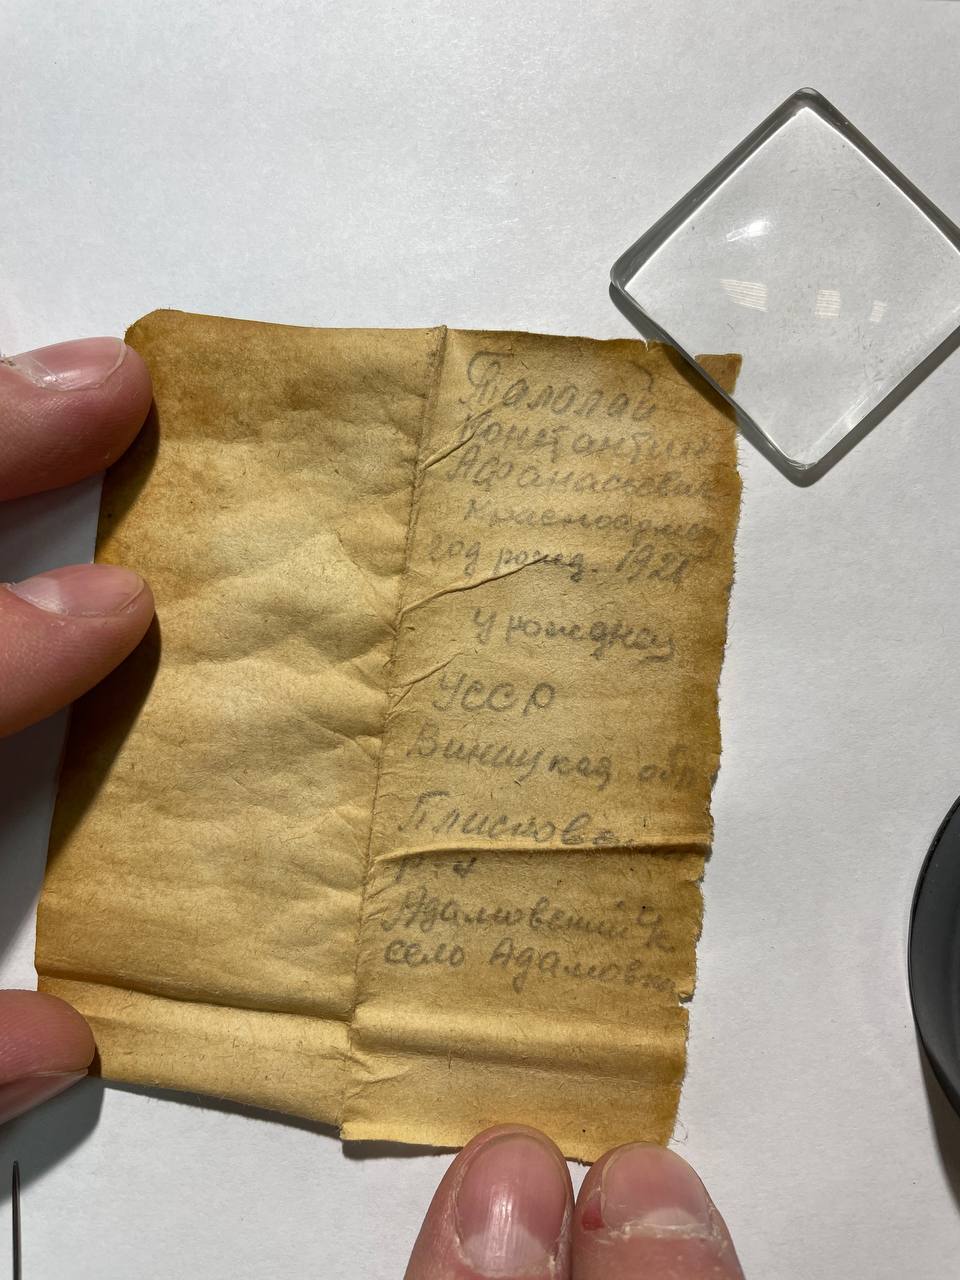 Талалай
Константин
Афанасьевич
Красноармеец
год рожд. 1921
Урожднец
УССР
Виницкая обл
Плисков
р-н
Адамовский
село Адамовка